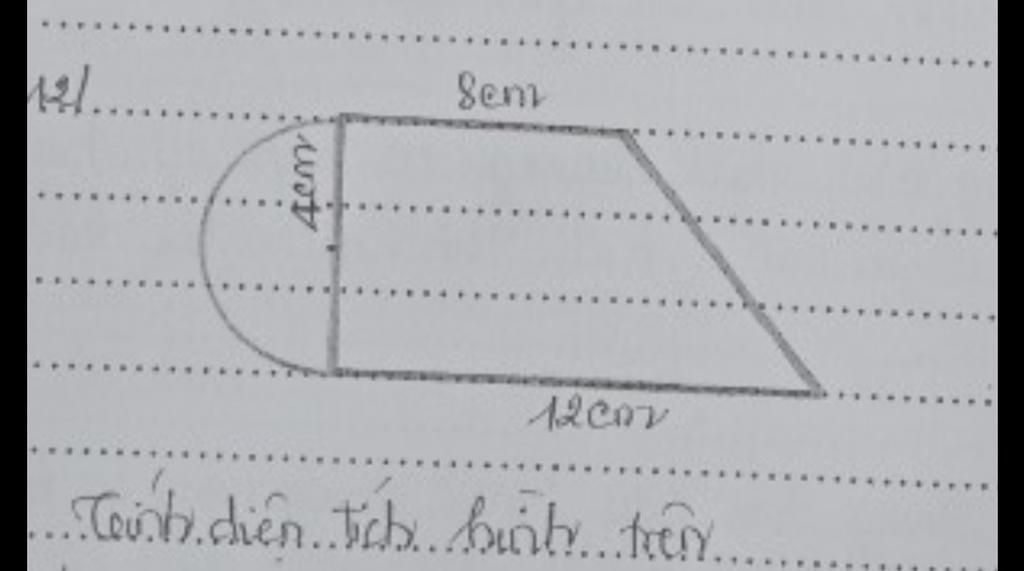 12/
8cm
4cm
12cm
Tính diện tích hình trên